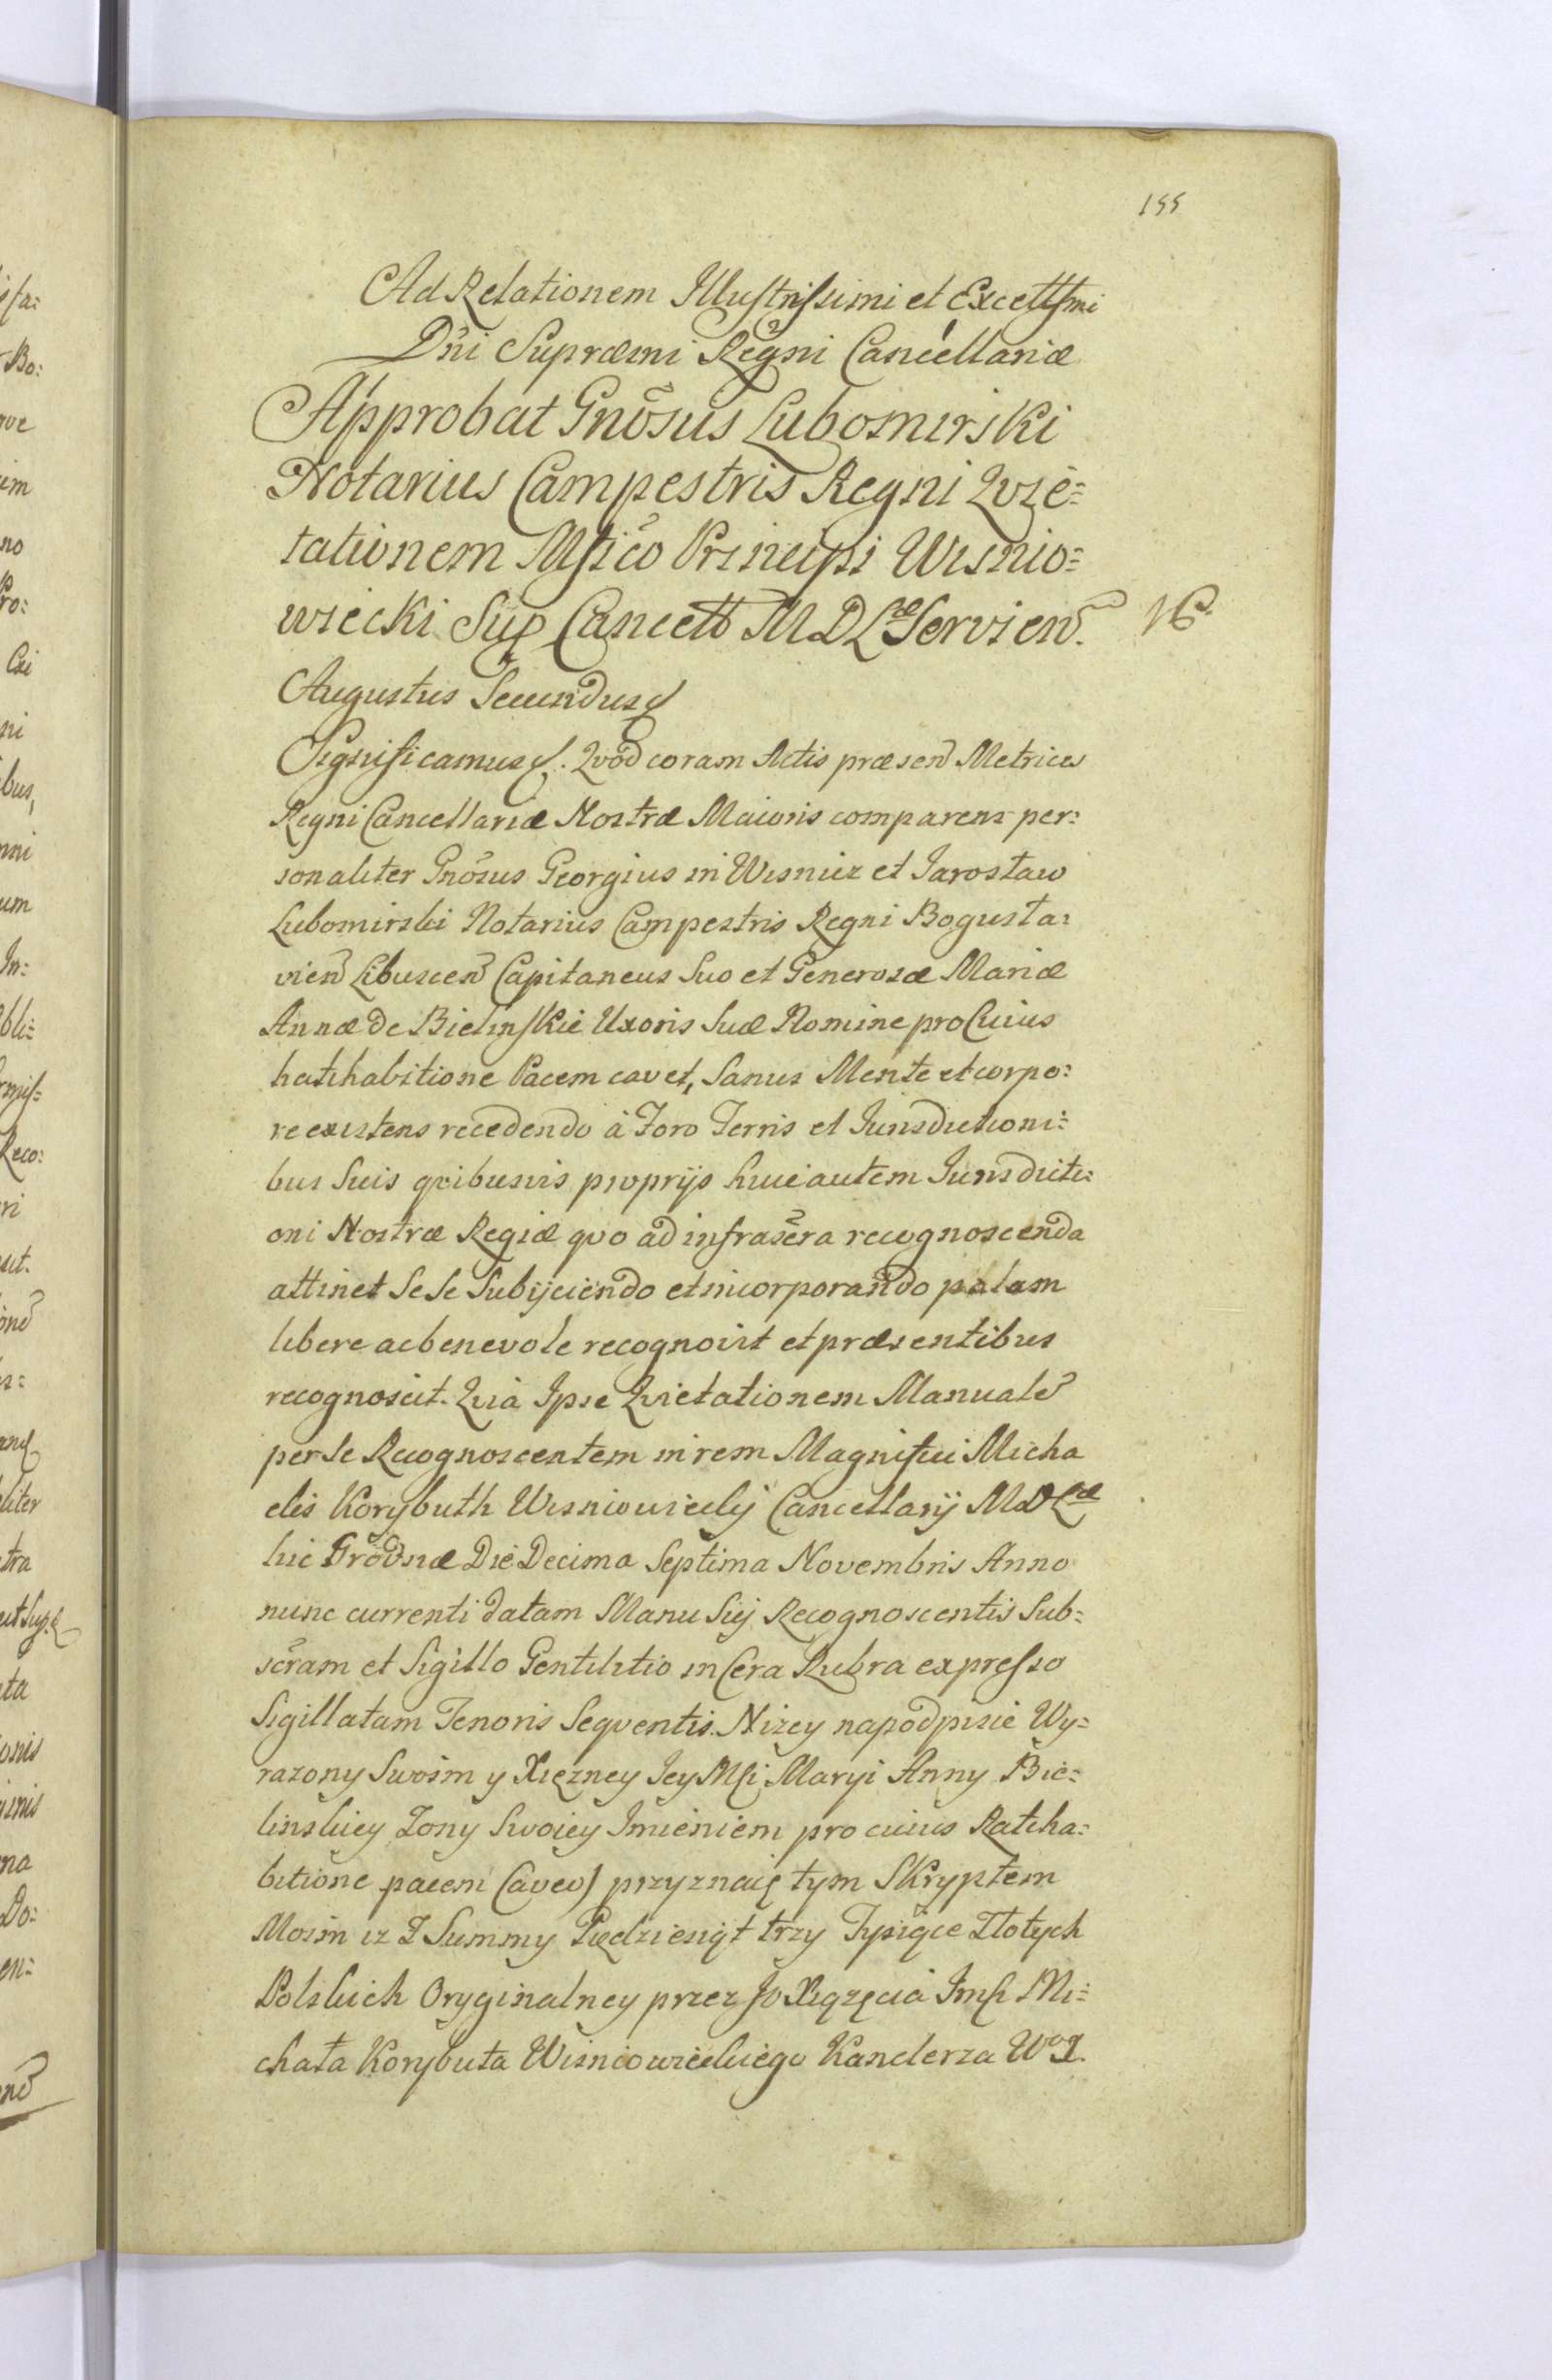 155
Ad Relationem Illustrissimi et Excellsmi
Dni Supræmi Regni Cancellariæ
Approbat Gnosus Lubomirski
Notarius Campestris Regni Qvie=
tationem Mfico Principi Wisnio=
wiecki Sup Cancell M D L Servien.
16.
Augustus Secundus
Significamus. Qvod coram Actis præsen Metrices
Regni Cancellariæ Nostræ Maioris comparens per=
sonaliter Gnosus Georgius in Wisnicz et Jarosław
Lubomirski Notarius Campestris Regni Bogusła=
vien Libuscen Capitaneus Suo et Generosæ Mariæ
Annæ de Bielinskie Uxoris Suæ Nomine pro Cuius
hatihabitione Pacem cavet, Sanus Mente et corpo=
re existens recedendo à Foro Terris et Iurisdictioni=
bus Suis qvibusvis proprijs huic autem Iurisdicti=
oni Nostræ Regiæ qvo ad infrascra recognoscenda
attinet Se Se Subijciendo et incorporando palam
libere ac benevole recognovit et præsentibus
recognoscit. Qvia Ipse Qvietationem Manuale
per Se Recognoscentem in rem Magnifici Micha
elis Korybuth Wisniowiecky Cancellarij MDL
hic Grodnæ Die Decima Septima Novembris Anno
nunc currenti datam Manu Sui Recognoscentis Sub=
scram et Sigillo Gentilitio in Cera Rubra expresso
Sigillatam Tenoris Seqventis. Niżey napodpisie Wy=
razony Swoim y Xiężney Jey Mci Maryi Anny Bie=
linskiey Zony Swoiey Imieniem pro cuius Ratiha=
bitione pacem Caveo) przyznaię tym Skryptem
Moim iz Z Summy Pięćdziesiąt trzy Tysiące Złotych
Polskich Oryginalney przez Jo Xiążęcia Imci Mi=
chała Korybuta Wisniowieckiego Kanclerza W